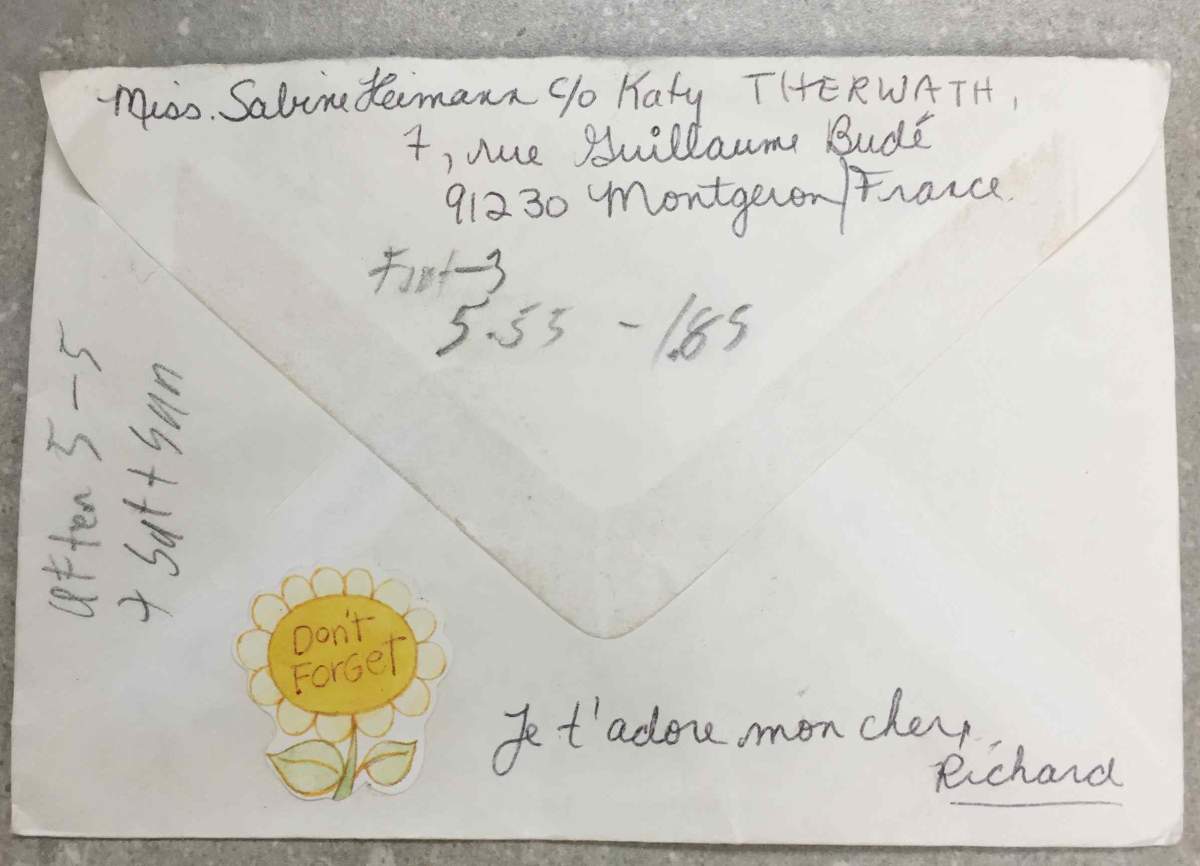 Miss. Sabine Heimann c/o Katy THERWATH,
7, rue Guillaume Budé
91230 Montgeron/France.
5.55 - 1.85
after 5-5
+ Sat + Sun
Don't
Forget
Je t'adore mon cher,
Richard